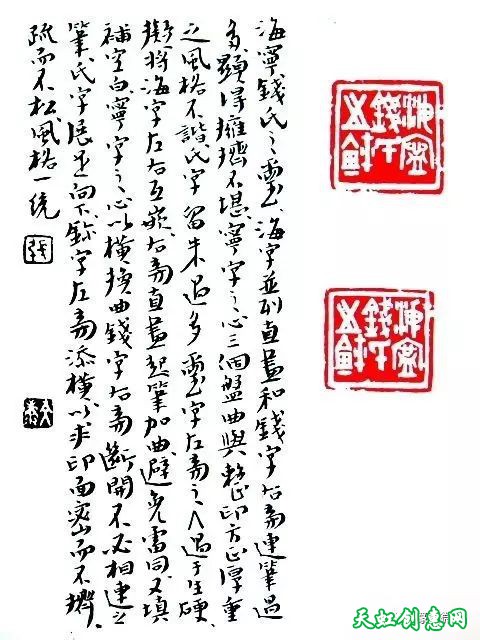 海寧錢氏之璽海字並列直畫和錢字右旁連筆過
多顯得擁擠不堪寧字之心三個盤曲與整印方正厚重
之風格不諧氏字留朱過多璽字左旁之人過于生硬
擬將海字左右互嵌右旁直畫起筆加曲避免雷同又填
補空白寧字之心以橫換曲錢字右旁斷開不必相連之
筆氏字展足向下鉨字左旁添橫以求印面密而不擠
疏而不松風格一統
張
海寧錢氏之鉨
海寧錢氏之鉨
天虹创意网